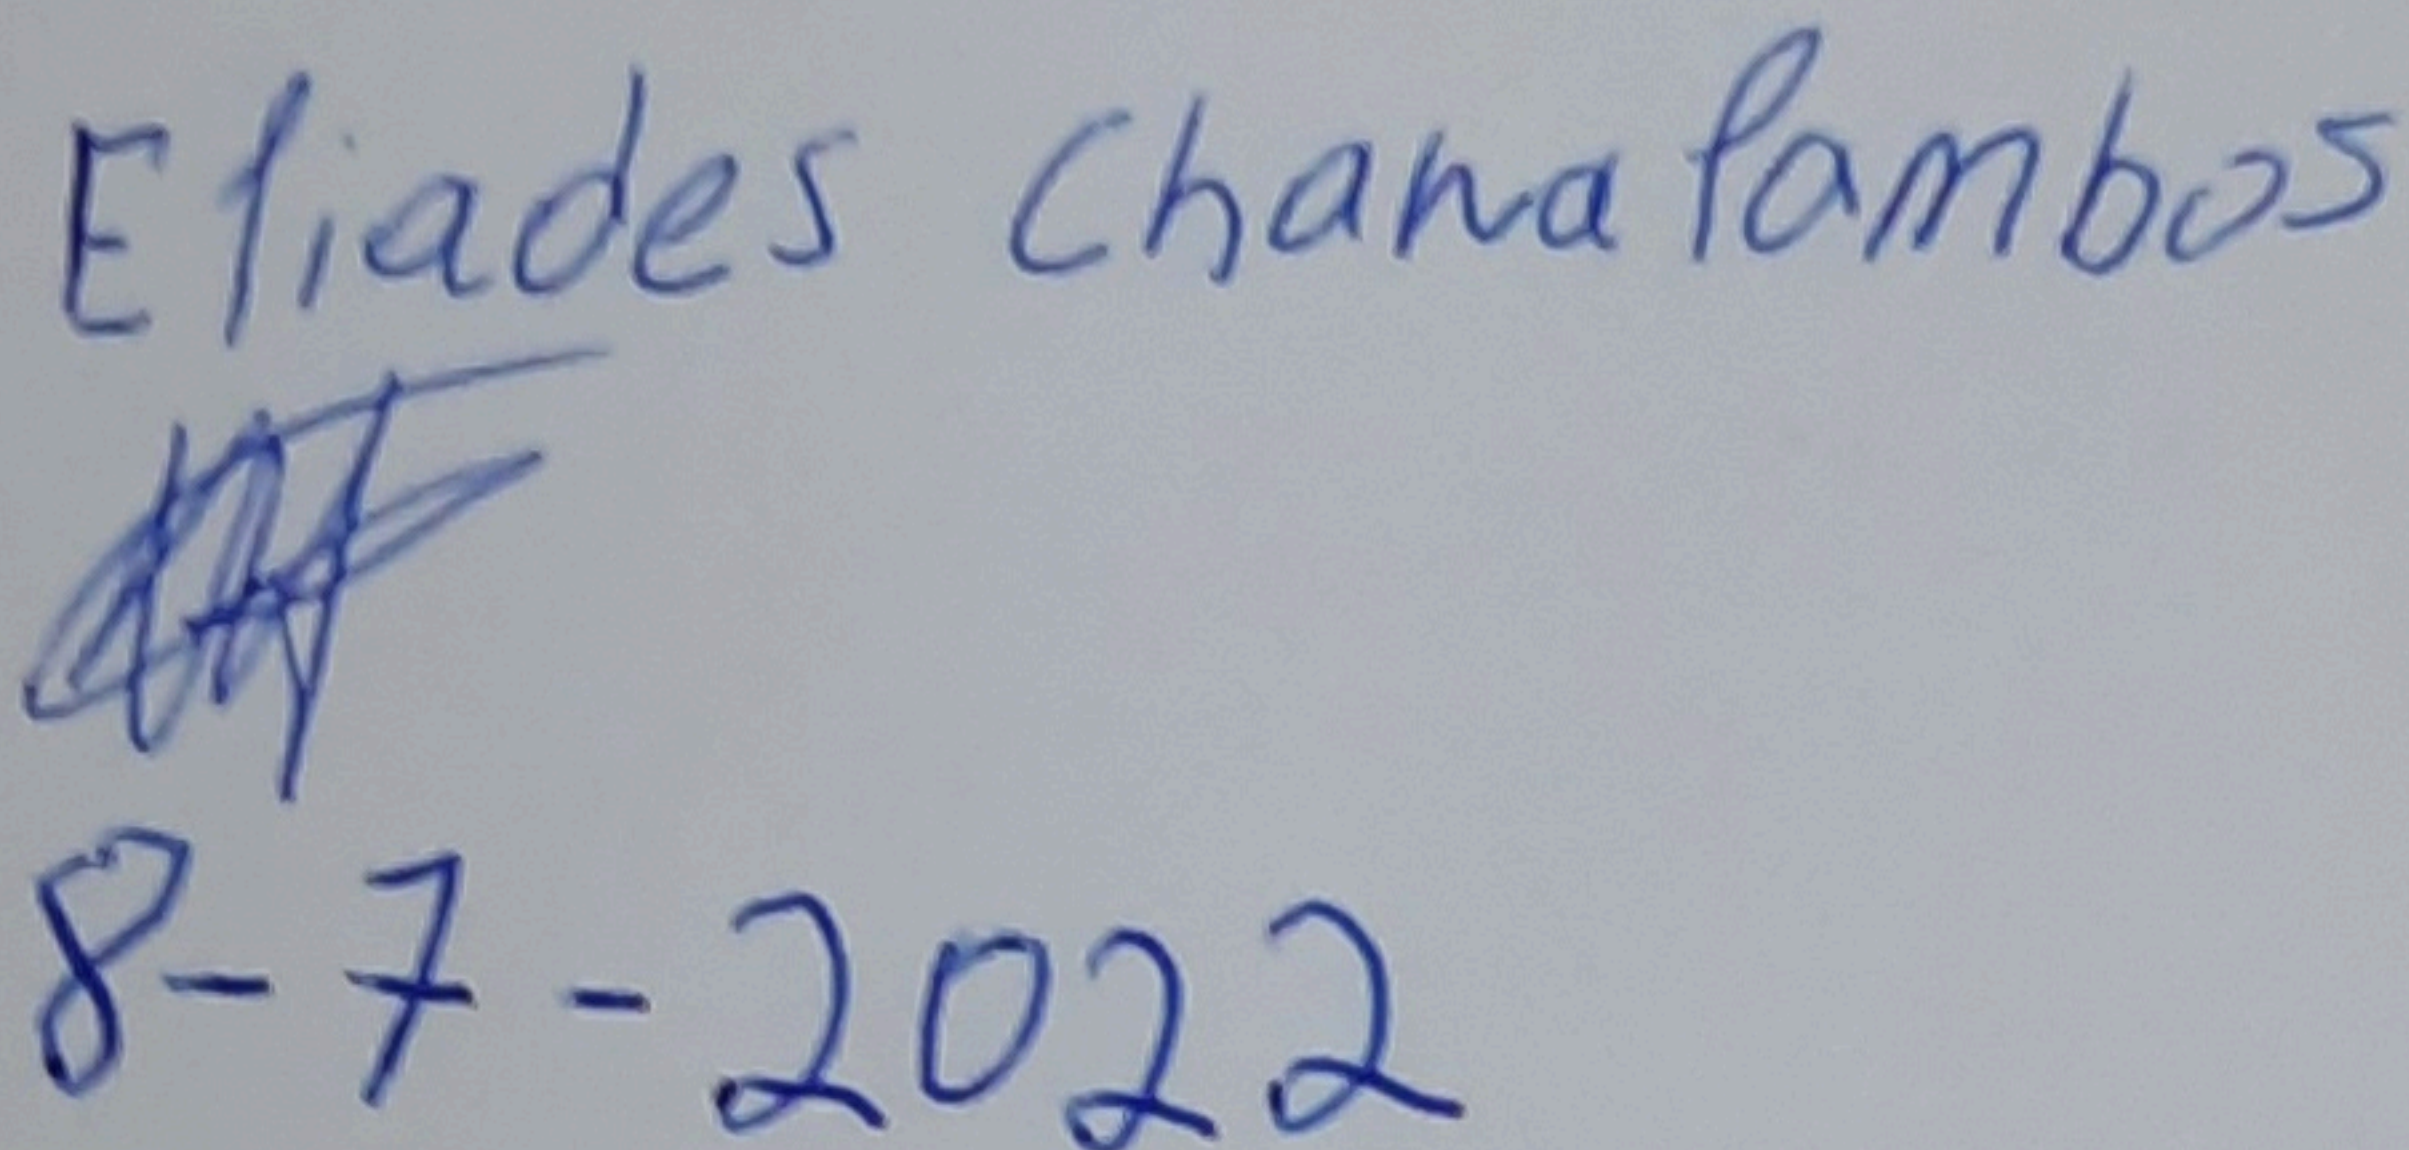 Eliades Charalambos
8-7-2022